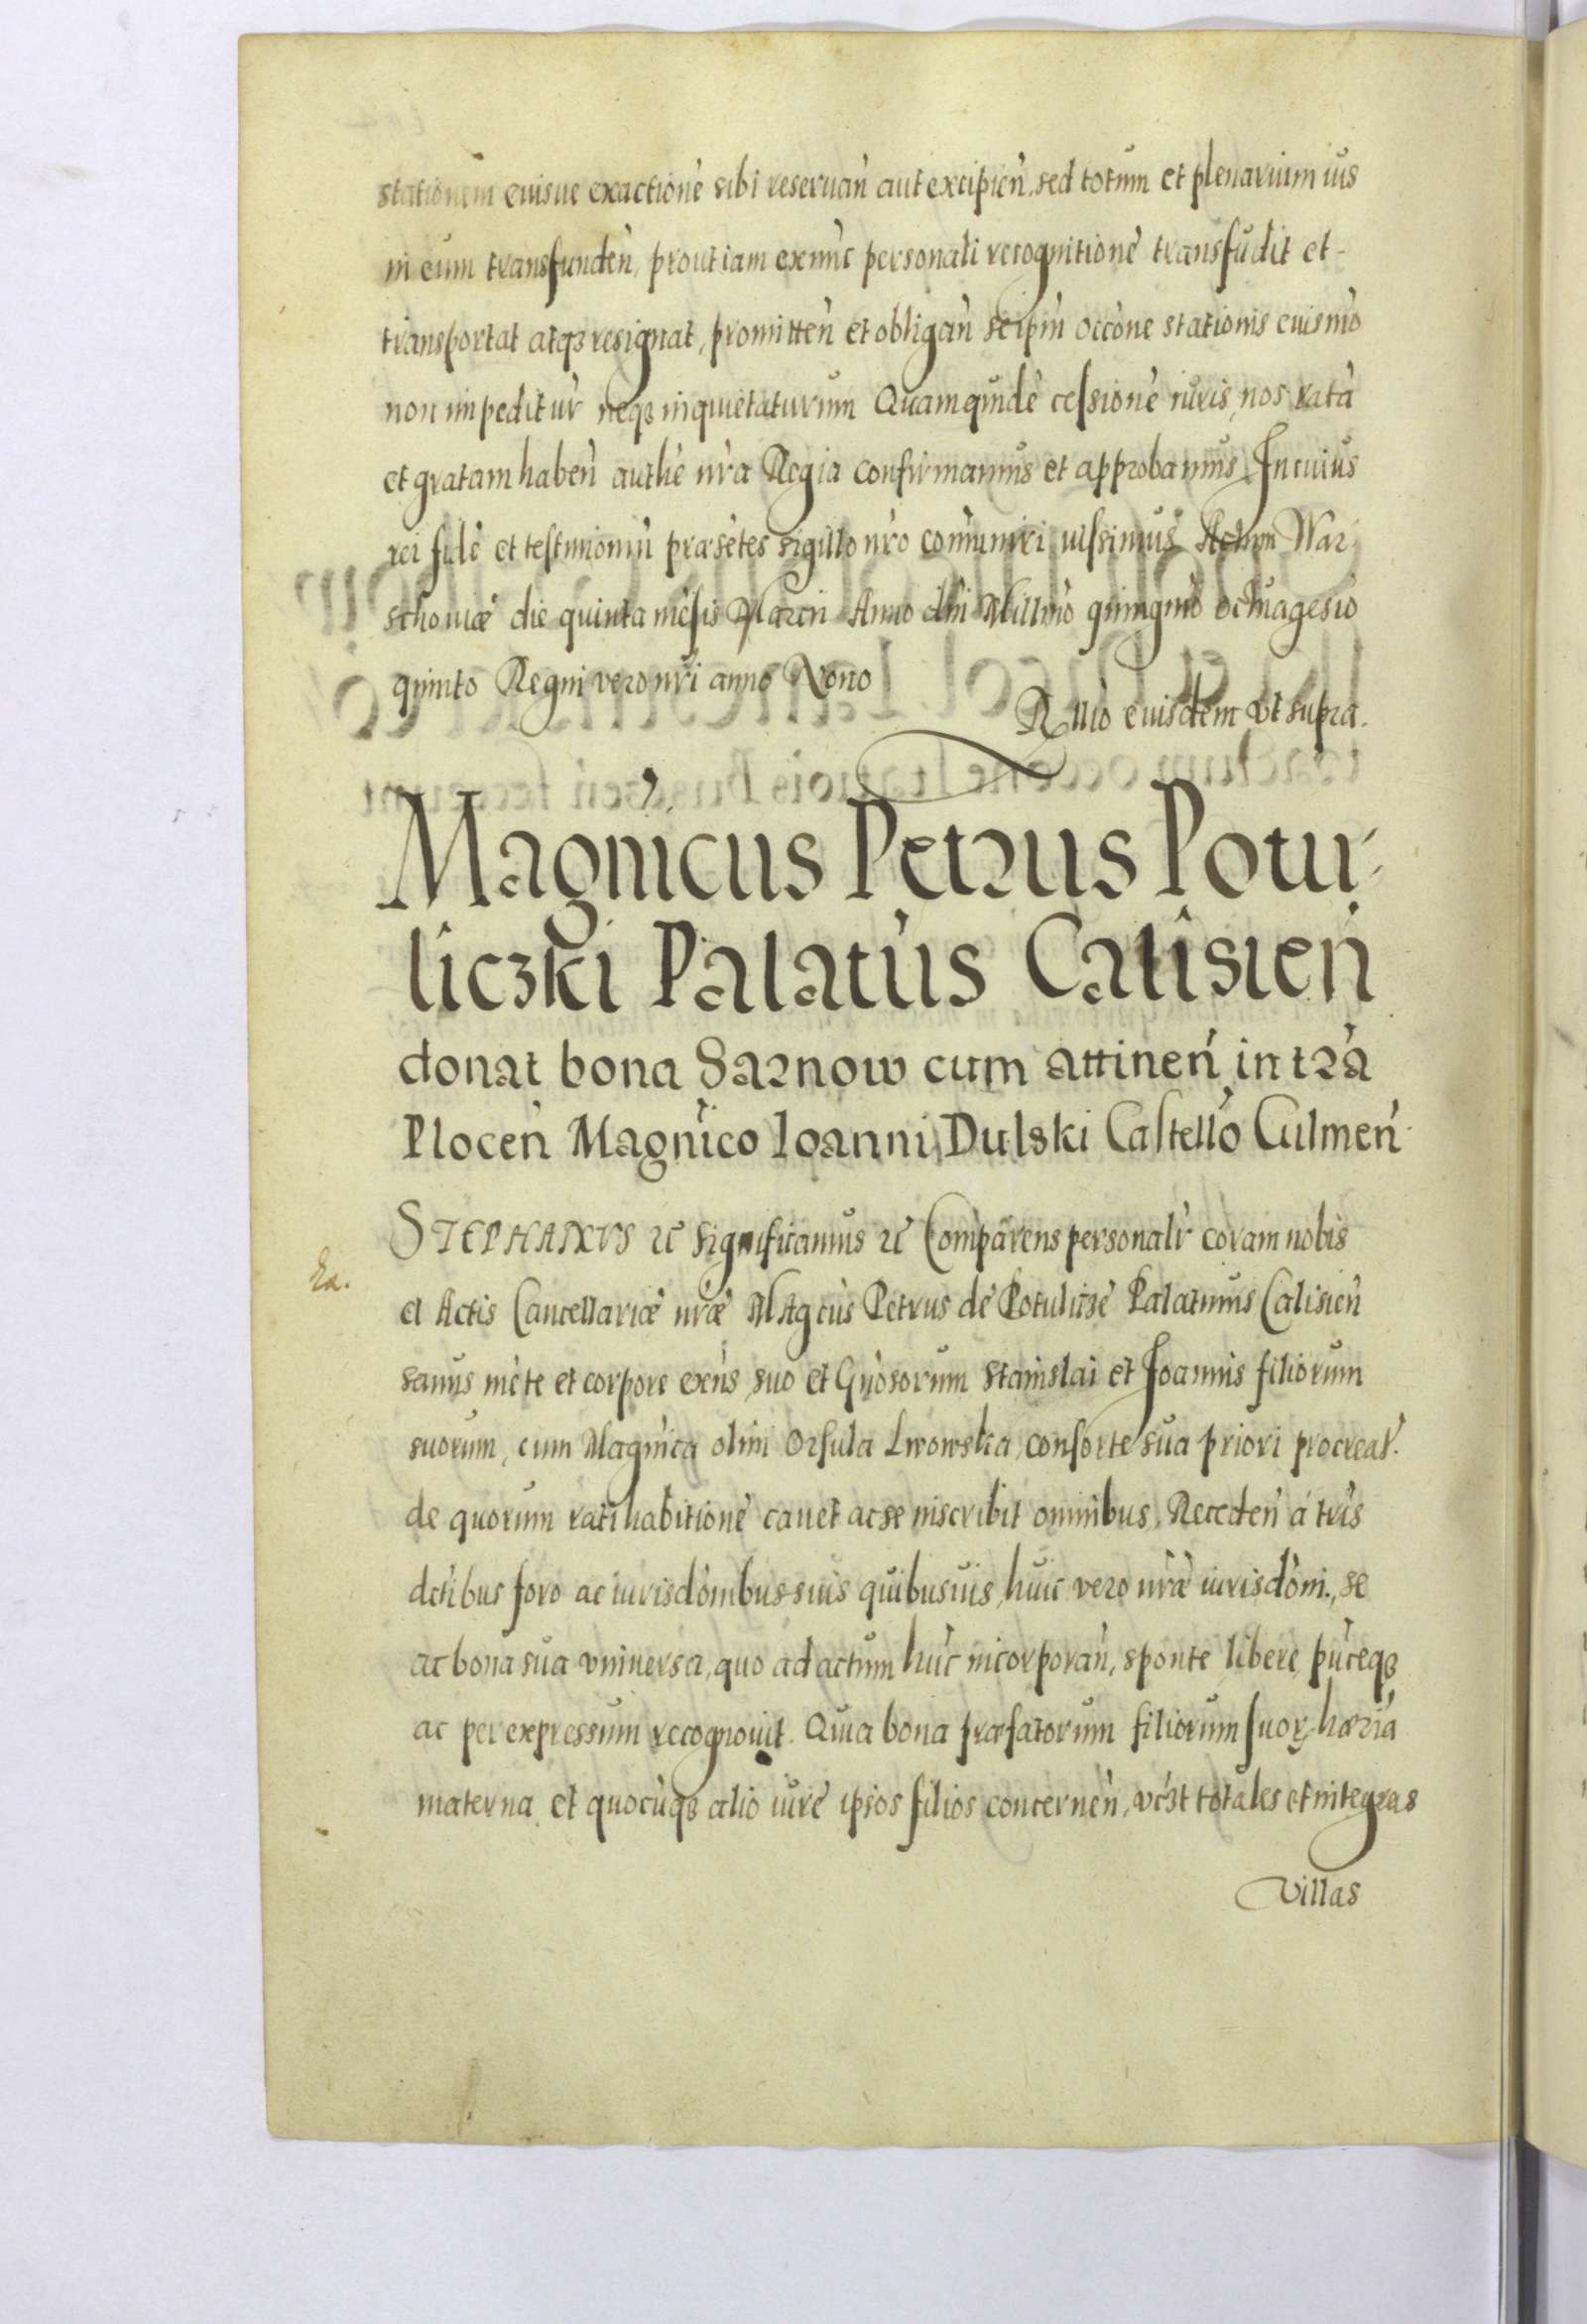 stationem euisue exactionè sibi reseruan̄ aut excipien̄, sed totum et plenarium ius
in eum transfunden̄, prout iam exnūc personali recognitionè transfudit et-
transportat atqȝ resignat, promitten̄ et obligan̄ se ipm̄ occōne stationis euismō
non impeditur̄ neqȝ inquietaturum Quamquidē cessionè iuris, nos ratā
et gratam haben̄ authē nrā Regia confirmamus et approbamus, In cuius
rei fidē et testimoniū præsētes sigillo nrō communiri iussimus Actum War
schouiæ die quinta mēsis Marcii Anno dni Millmō quingmō octuagesiō
quinto Regni vero nri anno Nono
Rllio euisdem vt supra.
Magnicus Petrus Potu-
liczki Palatūs Calisien̄
donat bona Sarnow cum attinen̄ in trā
Plocen̄ Magnīco Ioanni Dulski Castellō Culmen̄
STEPHANVS ꝛc̄ significamus ꝛc̄ Comparens personalr̄ coram nobis
et Actis Cancellariæ nræ Magcūs Petrus de Potulicze Palatinus Calisien̄
Ra.
sanus mēte et corpore exn̄s suo et Gn̄osorum Stanislai et Joannis filiorum
suorum, cum Magnīca olim Orsula Lwowska, consorte sua priori procreat̄.
de quorum ratihabitionè cauet ac se inscribit omnibus. Receden̄ à tris
dctibus foro ac iurisdōnibus suis quibusuis, huic vero nræ iurisdōni., se
ac bona sua vniuersa, quo ad actum hūc incorporan̄, sponte libere pūceqȝ
ac per expressum recognouit. Quia bona præfatorum filiorum suoꝝ hæria
materna et quocūqȝ alio iurē ipsos filios concernen̄, vcȝt totales et integras
villas